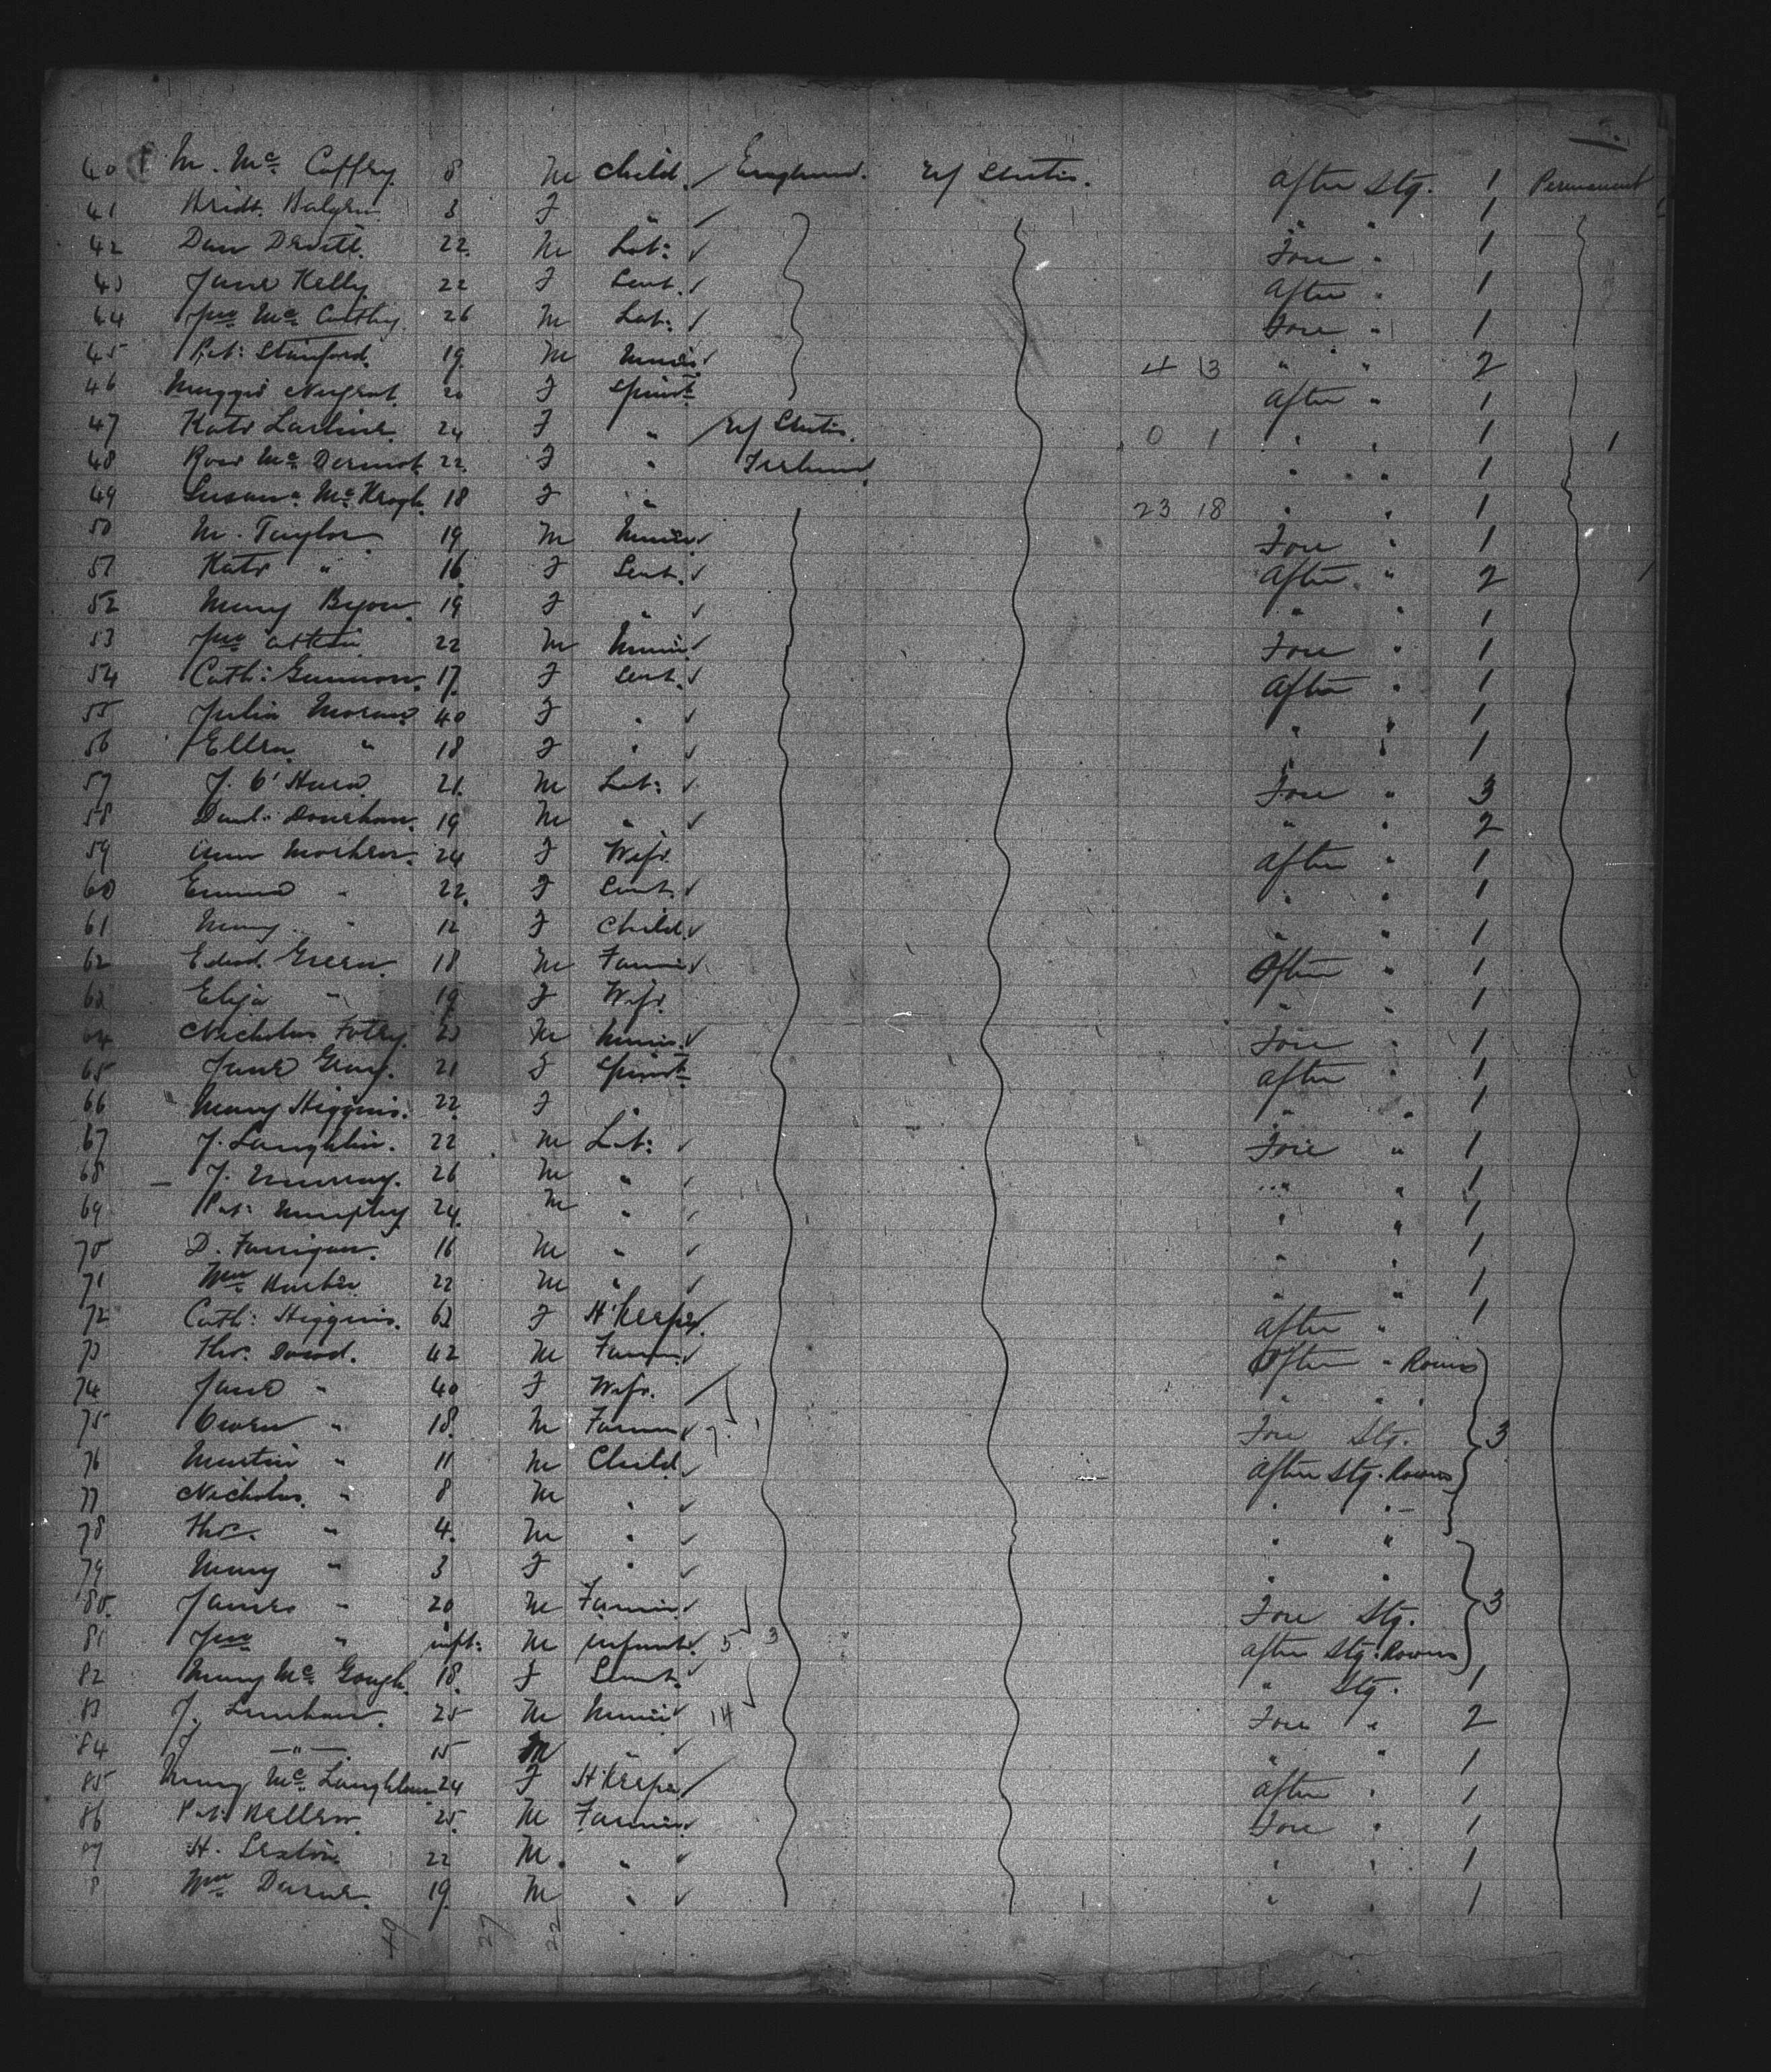 40 M. Mc Caffry. 8 M Child. England. U/ States. After Stg. 1 Permanent
41 3 F " " " 1
42 Dan Devitt. 22. M Lab: Fore " 1
43 Jane Kelly. 22 F Servt. After " 1
44 Jno Mc Carthy. 26 M Lab: Fore " 1
45 Pat: Stanford. 19. M Miner 4 13 " " 2
46 Maggie Nugent. 20 F Spinstr After " 1
47 Kate Larkins. 24 F " U/ States. 0 1 " " 1 1
48 Rose Mc Dermot. 22. F " Ireland. " " 1
49 Susan Mc Keogh. 18 F " 23 18 " " 1
50 M. Taylor. 19 M Miner Fore " 1
51 Kate " 16. F Servt. After " 2
52 Mary 19. F " " " 1
53 Jno 22 M Miner Fore " 1
54 Cath: Gannon. 17. F Servt. After " 1
55 Julia Moran 40 F " " " 1
56 Ellen " 18 F " " " 1
57 J. O'Hara. 21. M Lab: Fore " 3
58 Danl: Donohue. 19 M " " " 2
59 Ann 24 F Wife. After " 1
60 Emma " 22. F Servt. " " 1
61 Mary " 12 F Child. " " 1
62 Edwd. Green. 18 M Farmer After " 1
63 Eliza " 19 F Wife. " " 1
64 Nicholas 23 M Miner. Fore " 1
65 Jane Gray. 21 F Spinstr After " 1
66 Mary Higgins. 22. F " " " 1
67 J. Laughlin. 22 M Lab: Fore " 1
68 J. Murray. 26 M " " " 1
69 Pat: Murphy 24. M " " " 1
70 D. Farrigan. 16 M " " " 1
71 Wm 22 M " " " 1
72 Cath: Higgins. 62 F H'Keeper. After " 1
73 Thos. Dowd. 42 M Farmer After " Rooms
74 Jane " 40 F Wife. " "
75 Owen " 18. M Farmer Fore Stg. 3
76 Martin " 11 M Child. After Stg. Rooms
77 Nicholas. " 8 M " " "
78 Thos. " 4. M " " "
79 Mary " 3 F " " "
80. James " 20 M Farmer Fore Stg. 3
81 Jno " inft: M Infant. 5 3 After Stg. Rooms
82 Mary Mc Gough. 18. F Servt. " Stg. 1
83 J. Lenehan. 25 M Miner 14 Fore " 2
84 J — " — 15 M " " " 1
85 Mary Mc Laughlan 24 F H'Keeper After " 1
86 Pat: Kellew. 25. M Farmer Fore " 1
87 H. Sexton 22 M. " " " 1
8 Wm 19. M " " " 1
49 27 22